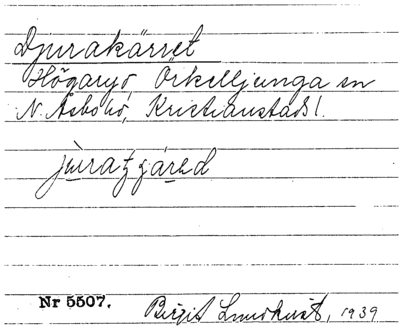 Djurakärret
Högaryd, Örkelljunga sn
N. Åsbo hd, Kristianstads l.
Nr 5507.
Birgit Lundkvist, 1939